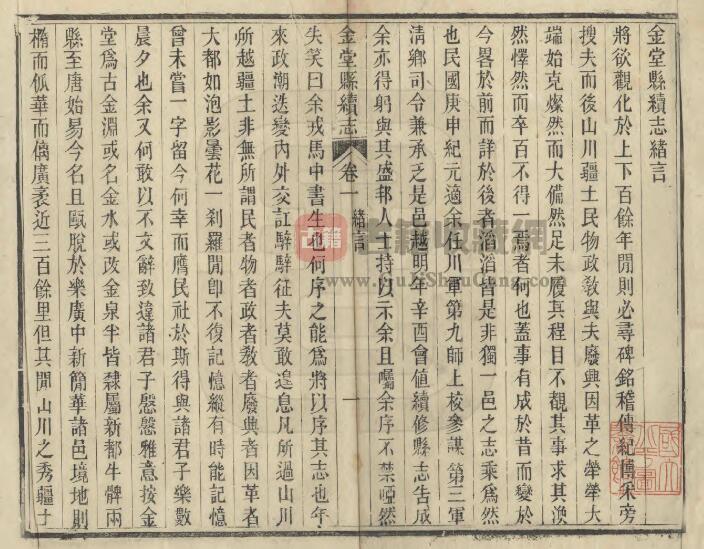 金堂縣續志緒言
將欲觀化於上下百餘年間則必尋碑銘稽傳紀博采旁
搜夫而後山川疆土民物政敎與夫廢興因革之犖犖大
端始克燦然而大備然足未履其程目不覩其事求其渙
然懌然而卒百不得一焉者何也蓋事有成於昔而變於
今畧於前而詳於後者滔滔皆是非獨一邑之志乘爲然
也民國庚申紀元適余任川軍第九師上校參謀第三軍
淸鄕司令兼承乏是邑越明年辛酉會値續修縣志告成
余亦得躬與其盛邦人士持以示余且囑余序不禁啞然
金堂縣續志 卷一 緒言 一
失笑曰余戎馬中書生也何序之能爲將以序其志也年
來政潮迭變內外交訌騂騂征夫莫敢遑息凡所過山川
所越疆土非無所謂民者物者政者敎者廢興者因革者
大都如泡影曇花一刹羅間卽不復記憶縱有時能記憶
曾未嘗一字留今何幸而膺民社於斯得與諸君子樂數
晨夕也余又何敢以不文辭致違諸君子慇慇雅意按金
堂爲古金淵或名金水或改金泉半皆隸屬新都牛鞞兩
縣至唐始易今名且甌脫於樂廣中新簡華諸邑境地則
橢而佤華而僪廣袤近三百餘里但其間山川之秀疆土
古籍
古籍收藏網
www.GuJiShouCang.com